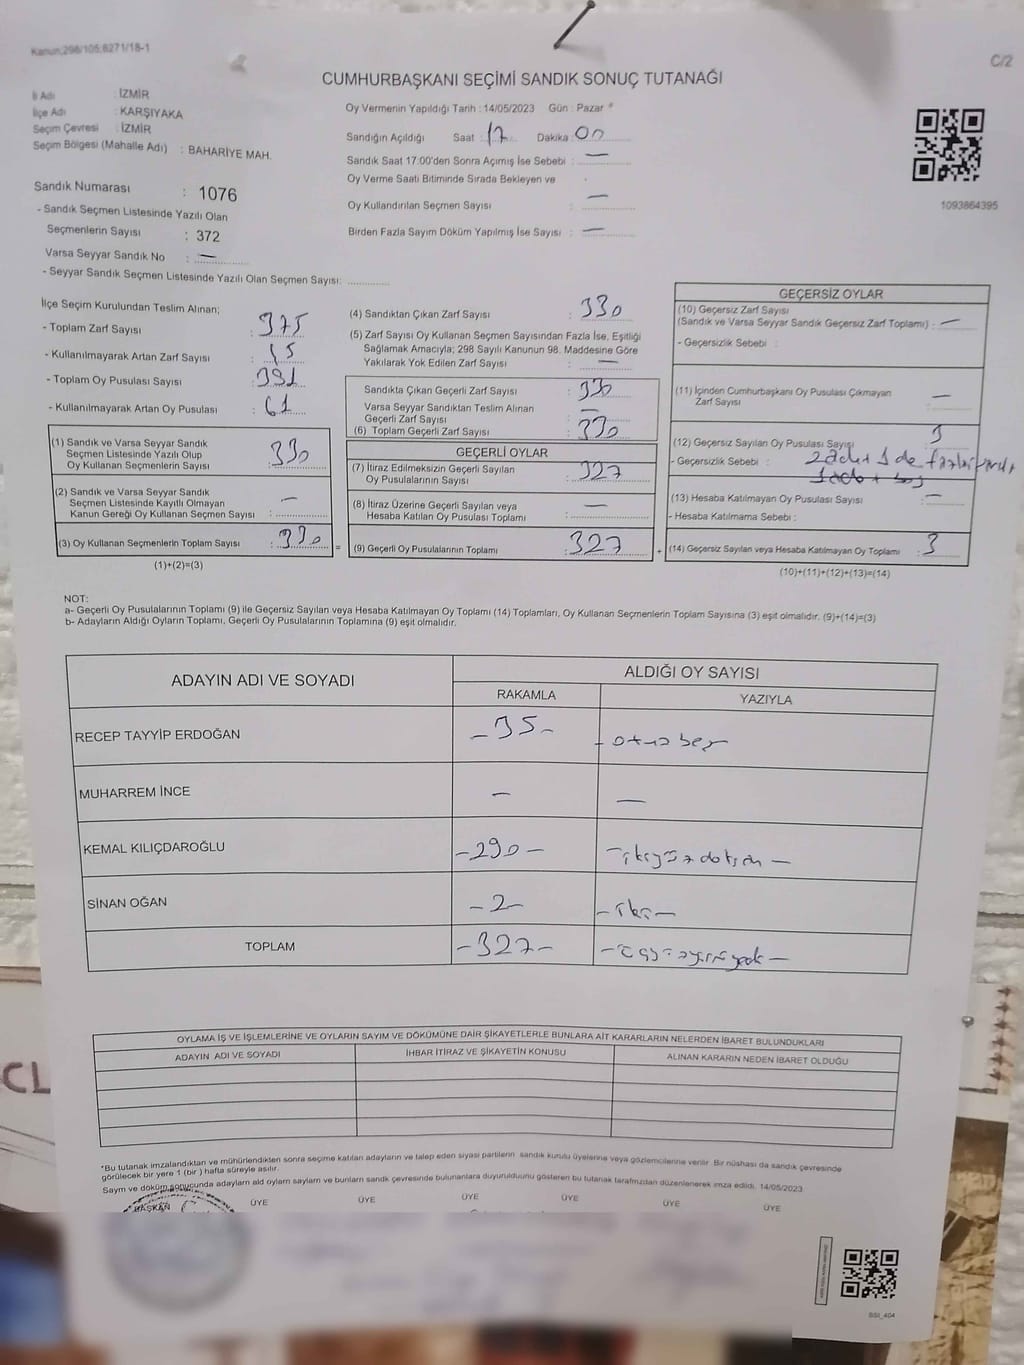 Kanun;298/105;6271/18-1
C/2
CUMHURBAŞKANI SEÇİMİ SANDIK SONUÇ TUTANAĞI
İl Adı : İZMİR
İlçe Adı : KARŞIYAKA
Seçim Çevresi : İZMİR
Seçim Bölgesi (Mahalle Adı) : BAHARİYE MAH.
Oy Vermenin Yapıldığı Tarih : 14/05/2023 Gün : Pazar *
Sandığın Açıldığı Saat : 17 Dakika : 00
Sandık Saat 17:00'den Sonra Açımış İse Sebebi : —
Oy Verme Saati Bitiminde Sırada Bekleyen ve
Oy Kullandırılan Seçmen Sayısı : —
Birden Fazla Sayım Döküm Yapılmış İse Sayısı : —
1093864395
Sandık Numarası : 1076
- Sandık Seçmen Listesinde Yazılı Olan
Seçmenlerin Sayısı : 372
Varsa Seyyar Sandık No : —
- Seyyar Sandık Seçmen Listesinde Yazılı Olan Seçmen Sayısı:
İlçe Seçim Kurulundan Teslim Alınan;
- Toplam Zarf Sayısı : 375
- Kullanılmayarak Artan Zarf Sayısı : 45
- Toplam Oy Pusulası Sayısı : 391
- Kullanılmayarak Artan Oy Pusulası : 61
(1) Sandık ve Varsa Seyyar Sandık
Seçmen Listesinde Yazılı Olup
Oy Kullanan Seçmenlerin Sayısı : 330
(2) Sandık ve Varsa Seyyar Sandık
Seçmen Listesinde Kayıtlı Olmayan
Kanun Gereği Oy Kullanan Seçmen Sayısı : —
(3) Oy Kullanan Seçmenlerin Toplam Sayısı : 330
(1)+(2)=(3)
(4) Sandıktan Çıkan Zarf Sayısı : 330
(5) Zarf Sayısı Oy Kullanan Seçmen Sayısından Fazla İse, Eşitliği
Sağlamak Amacıyla; 298 Sayılı Kanunun 98. Maddesine Göre
Yakılarak Yok Edilen Zarf Sayısı : —
Sandıkta Çıkan Geçerli Zarf Sayısı : 330
Varsa Seyyar Sandıktan Teslim Alınan
Geçerli Zarf Sayısı : —
(6) Toplam Geçerli Zarf Sayısı : 330
GEÇERLİ OYLAR
(7) İtiraz Edilmeksizin Geçerli Sayılan
Oy Pusulalarının Sayısı : 327
(8) İtiraz Üzerine Geçerli Sayılan veya
Hesaba Katılan Oy Pusulası Toplamı : —
= (9) Geçerli Oy Pusulalarının Toplamı : 327
GEÇERSİZ OYLAR
(10) Geçersiz Zarf Sayısı
(Sandık ve Varsa Seyyar Sandık Geçersiz Zarf Toplamı) : —
- Geçersizlik Sebebi :
(11) İçinden Cumhurbaşkanı Oy Pusulası Çıkmayan
Zarf Sayısı : —
(12) Geçersiz Sayılan Oy Pusulası Sayısı : 3
- Geçersizlik Sebebi :
(13) Hesaba Katılmayan Oy Pusulası Sayısı : —
- Hesaba Katılmama Sebebi :
+ (14) Geçersiz Sayılan veya Hesaba Katılmayan Oy Toplamı : 3
(10)+(11)+(12)+(13)=(14)
NOT:
a- Geçerli Oy Pusulalarının Toplamı (9) ile Geçersiz Sayılan veya Hesaba Katılmayan Oy Toplamı (14) Toplamları, Oy Kullanan Seçmenlerin Toplam Sayısına (3) eşit olmalıdır. (9)+(14)=(3)
b- Adayların Aldığı Oyların Toplamı, Geçerli Oy Pusulalarının Toplamına (9) eşit olmalıdır.
ADAYIN ADI VE SOYADI
ALDIĞI OY SAYISI
RAKAMLA YAZIYLA
RECEP TAYYİP ERDOĞAN -35- -otuz beş
MUHARREM İNCE — —
KEMAL KILIÇDAROĞLU -290- -ikiyüz doksan-
SİNAN OĞAN -2- -iki-
TOPLAM -327- -üçyüzyirmiyedi-
OYLAMA İŞ VE İŞLEMLERİNE VE OYLARIN SAYIM VE DÖKÜMÜNE DAİR ŞİKAYETLERLE BUNLARA AİT KARARLARIN NELERDEN İBARET BULUNDUKLARI
ADAYIN ADI VE SOYADI İHBAR İTİRAZ VE ŞİKAYETİN KONUSU ALINAN KARARIN NEDEN İBARET OLDUĞU
*Bu tutanak imzalandıktan ve mühürlendikten sonra seçime katılan adayların ve talep eden siyasi partilerin sandık kurulu üyelerine veya gözlemcilerine verilir. Bir nüshası da sandık çevresinde
görülecek bir yere 1 (bir) hafta süreyle asılır.
Sayım ve döküm sonucunda adayların aldığı oyların sayıları ve bunların sandık çevresinde bulunanlara duyurulduğunu gösteren bu tutanak tarafımızdan düzenlenerek imza edildi. 14/05/2023
BAŞKAN ÜYE ÜYE ÜYE ÜYE ÜYE ÜYE
CL